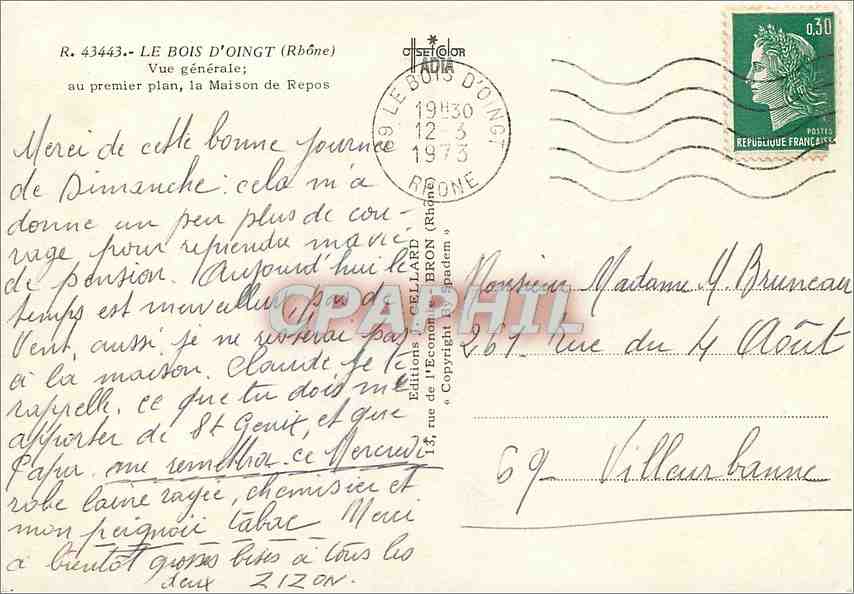 R. 43443.- LE BOIS D'OINGT (Rhône)
Vue générale;
au premier plan, la Maison de Repos
Merci de cette bonne journée
de Dimanche: cela m'a
donné un peu plus de cou-
rage pour reprendre ma vie
de pension. Aujourd'hui le
temps est merveilleux, pas de
Vent, aussi je ne resterai pas
à la maison. Claude je te
rappelle, ce que tu dois me
apporter de St Genix, et que
Papa me remettra ce Mercredi
robe laine rayée, chemisier et
mon peignoir tabac Merci
à bientôt grosses bises à tous les
deux ZIZON.
OFFSETCOLOR
ADIA
69 LE BOIS D'OINGT
19H30
12-3
1973
RHONE
Editions J. CELLARD
13, rue de l'Economie - BRON (Rhône)
« Copyright By Spadem »
0,30
POSTES
REPUBLIQUE FRANCAISE
Monsieur Madame Y. Bruneau
261 Rue du 4 Août
69 - Villeurbanne
CPAPHIL